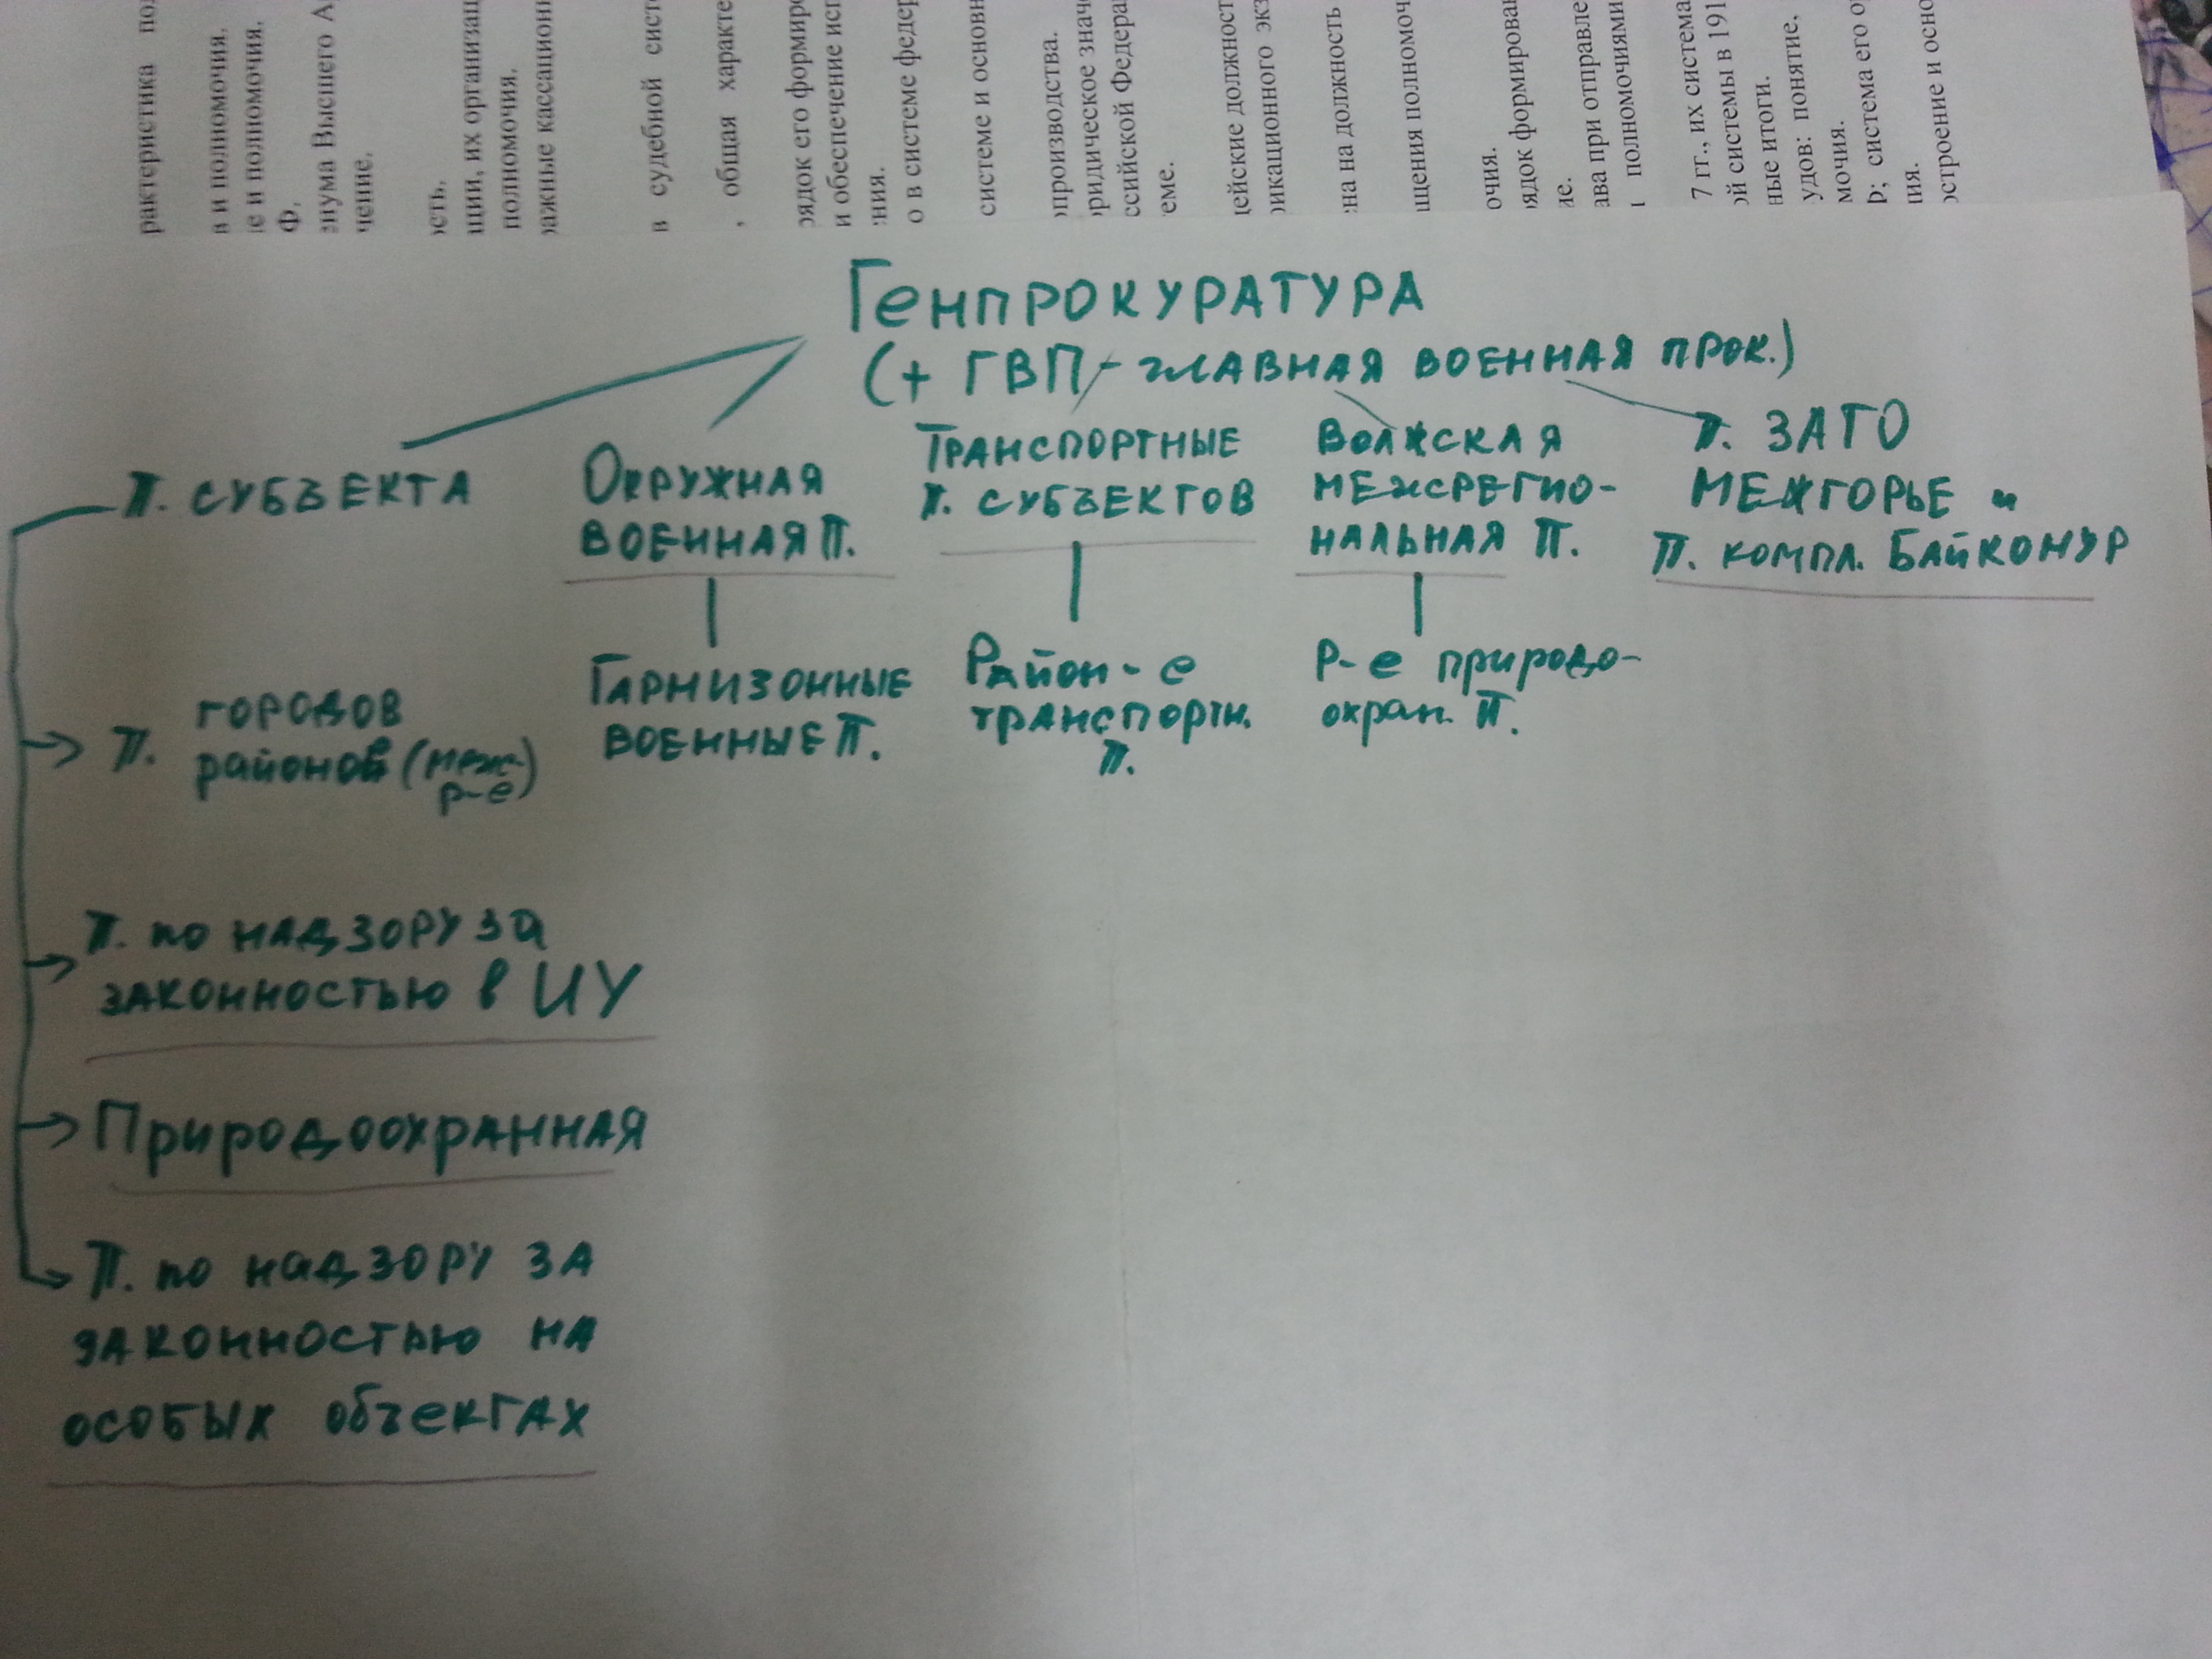 рактеристика по
в и полномочия.
е и полномочия.
Ф.
энума Высшего А
чение.
ость.
ции, их организац
полномочия.
ражные кассационн
в судебной сист
, общая характе
рядок его формиро
и обеспечение исп
ния.
о в системе федер
системе и основн
производства.
ридическое значе
ссийской Федера
еме.
дейские должност
икационного экз
на на должность
щения полномоч
очия.
рядок формирован
ие.
ава при отправле
полномочиями
7 гг., их система
ой системы в 191
ные итоги.
удов: понятие,
мочия.
Р; система его ор
ия.
остроение и осно
Генпрокуратура
(+ ГВП - главная военная прок.)
П. субъекта
Окружная
военная П.
Транспортные
П. субъектов
Волжская
межрегио-
нальная П.
П. ЗАТО
Межгорье и
П. компл. Байконур
П. городов
районов (меж-
р-е)
Гарнизонные
военные П.
Район-е
транспортн.
П.
Р-е природо-
охран. П.
П. по надзору за
законностью в ИУ
Природоохранная
П. по надзору за
законностью на
особых объектах